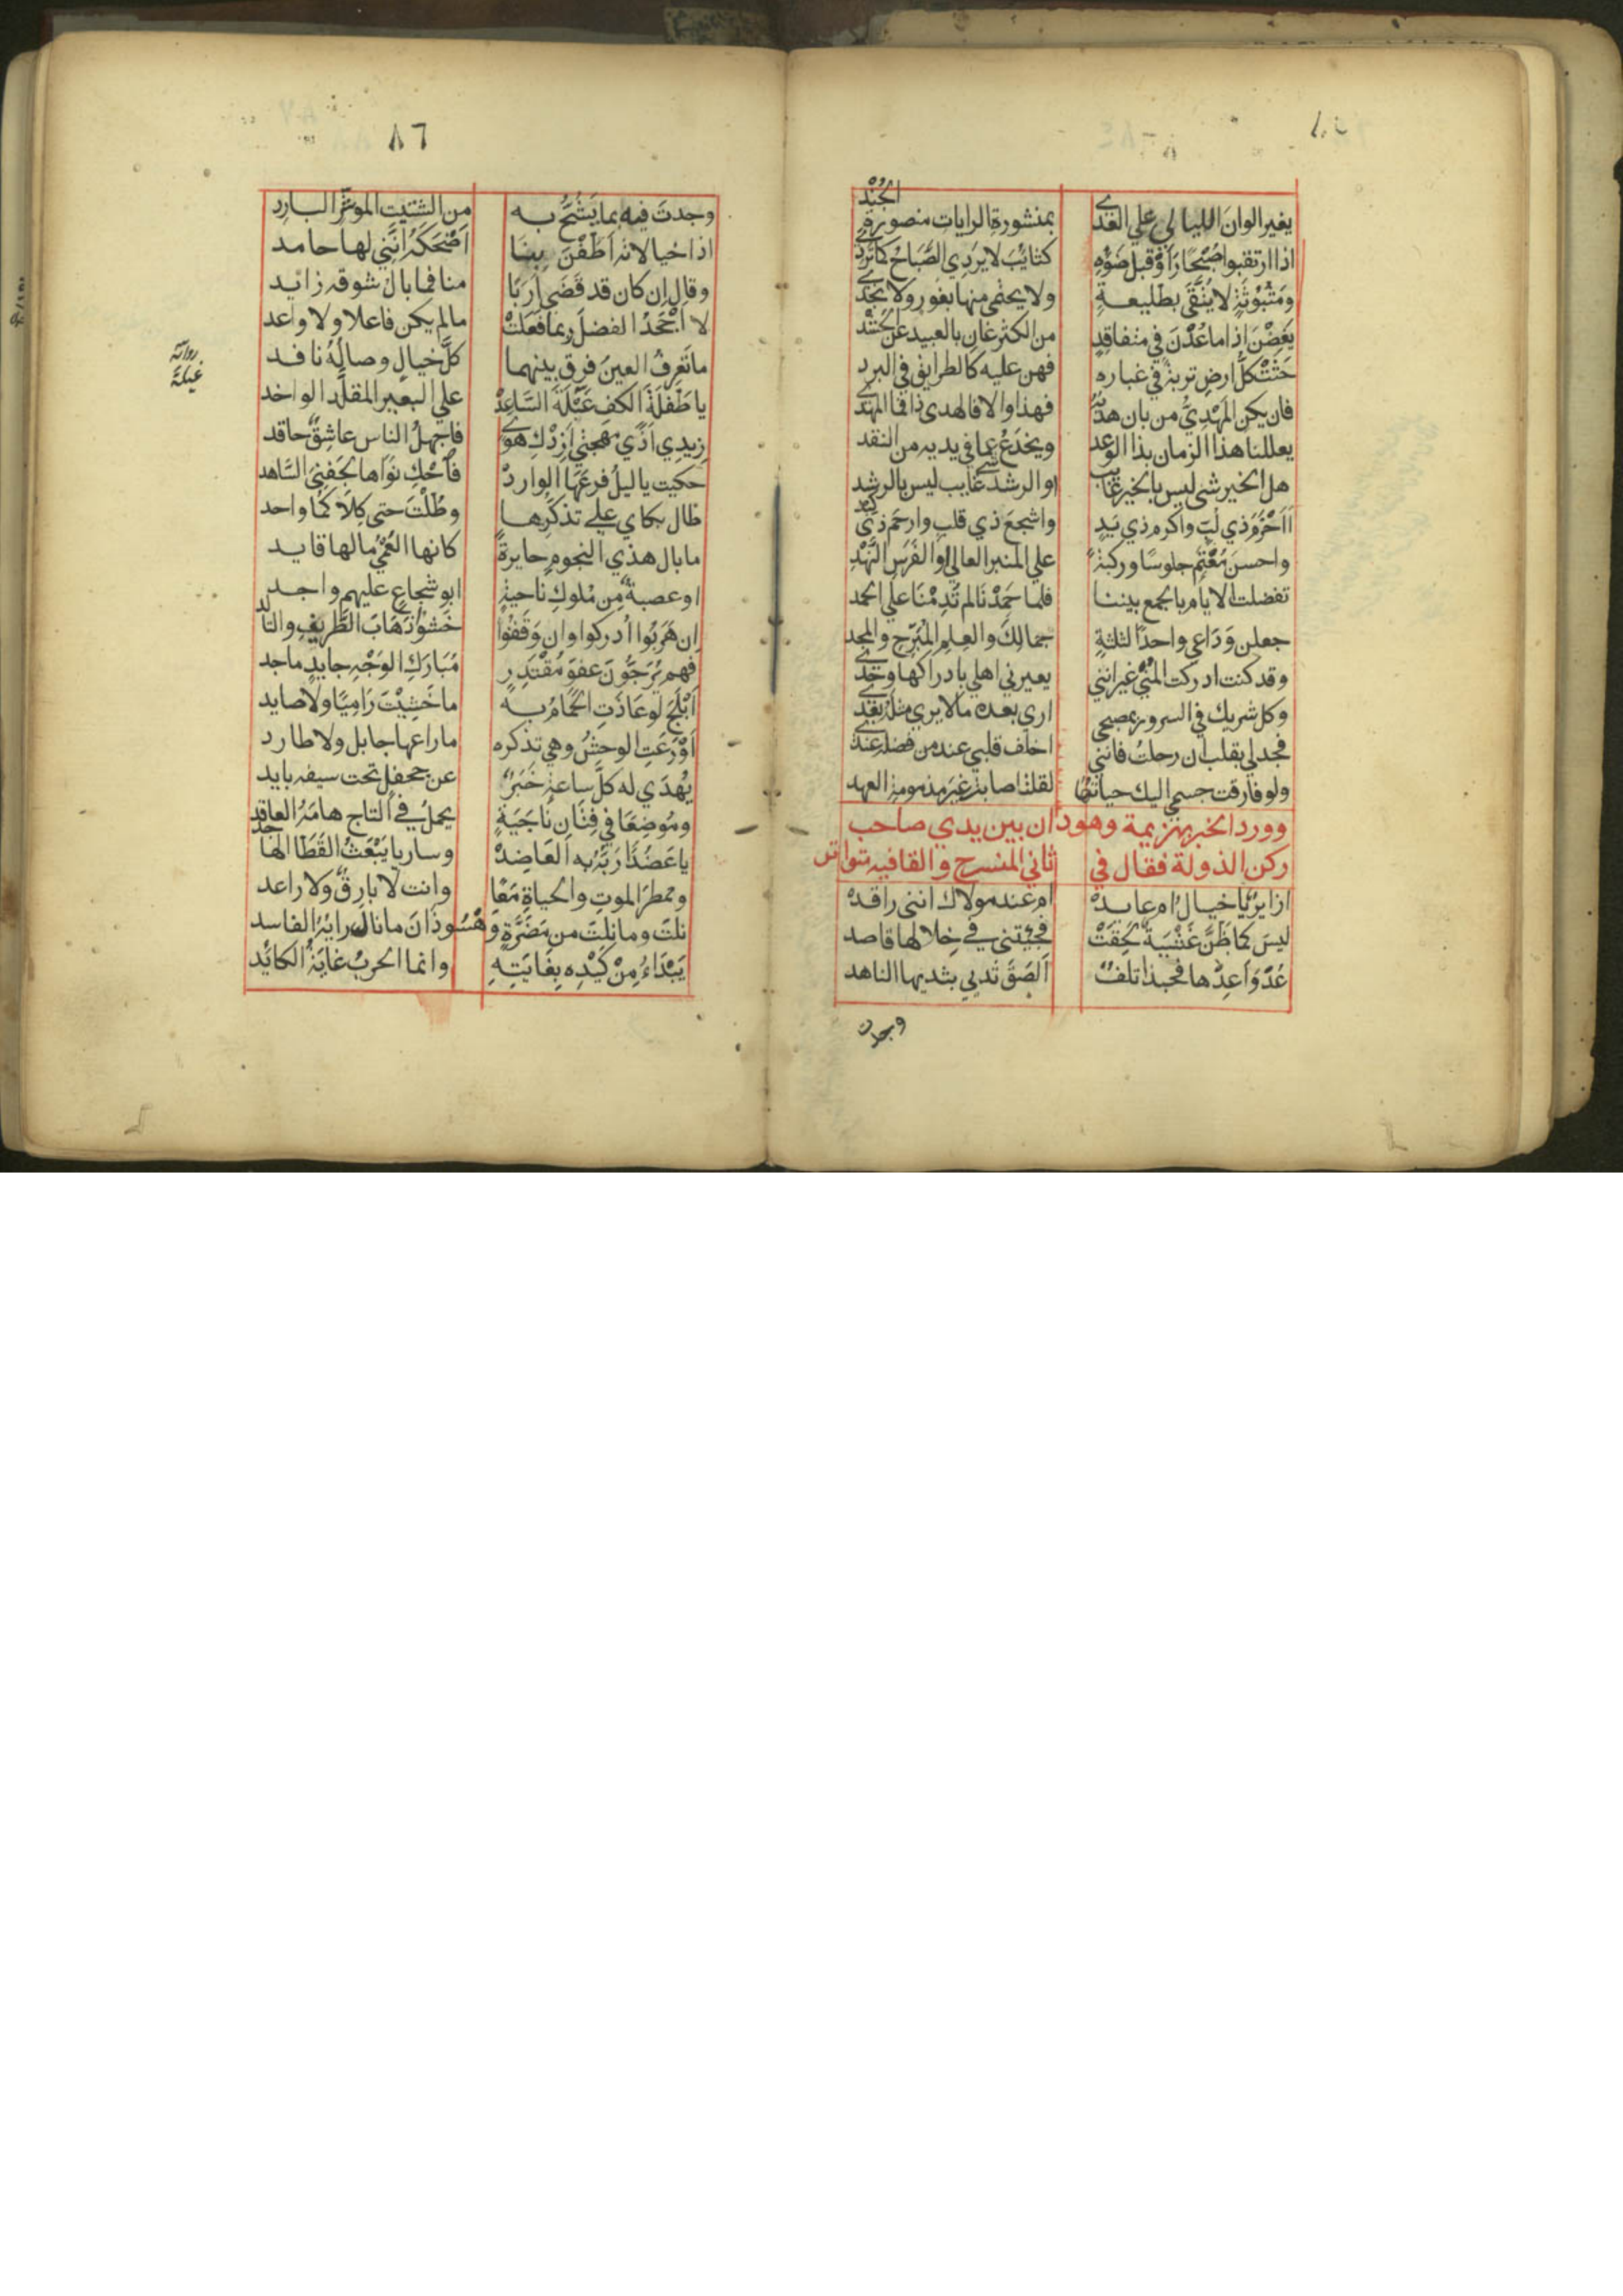 ٨٦
الجُنْدِ
يغير الوانَ الليالي علي العَدي بمنشورة الرايات منصورة
اذا ارتقبوا صُبْحًا رَأوْ قبلَ ضَوْءِه كتائبَ لا يردِي الصَّبَاحُ كما تَردي
ومَبْثُوثَةٍ لا يُتَّقَى بطليعةٍ ولا يحتمي منها بغور ولا نجد
يَغِضْنَ اذا ما عُدْنَ في متفاقِدٍ من الكثر غان بالعبيد عن
حَثَتْ كلُّ ارضٍ تربةً في غباره فهن عليه كالطرايق في البرد
فان يكن المَهْدِيُّ من بان هَدْيُهُ فهذا والا فالهدى ذا فما المهدي
يعللنا هذا الزمان بذا الوعد ويخدَعُ عما في يديه من النقد
هل الخير شي ليس بالخير غايب او الرشد شي غايب ليس بالرشد
أاَحْزَمَ ذي لبّ واكرم ذي يَدٍ واشجعَ ذي قلبٍ وارحَمَ ذي كبد
واحسنَ مُعْتمٍّ جلوسًا وركبةً علي المنبر العالي او الفَرَسِ النَّهْدِ
تفضلت الايام بالجمع بيننا فلما حَمِدْنَا لم تُدِمْنَا علي الحمد
جعلن وَدَاعي واحدًا لثلثةٍ جمالِكَ والعِلمِ المُبَرّحِ والمجد
وقد كنت ادركت المُنَي غير انني يعيرني اهلي بادراكها وحدي
وكل شريك في السرور بمصبحي اري بعده من لا يري مثله بعدي
فجد لي بقلب ان رحلتُ فانني اخلف قلبي عند من فضله عندي
ولو فارقت جسمي اليك حياتها لقلت اصابت غيرَ مذمومة العهد
وورد الخبر بهزيمة وهوذان بين يدي صاحب
ركن الدولة فقال في ثاني المنسرح والقافيه متواتر
ازايرٌ يا خيالُ ام عايدْ ام عند مولاك انني راقدْ
ليسَ كما ظَنَّ غَشْيَةٌ لَحِقَتْ فجِئتني في خِلالها قاصد
عُدْ وَاَعِدْها فحبذا تلفٌ اَلصَقَ ثَديي بثديها الناهد
وجدت
وجدتَ فيه بما يَشُحُّ به من الشتيتِ المؤشّر البارِد
اذا خيالاته اَطَفْنَ بِنَا اَضْحَكَهُ اَنّني لها حامد
وقال ان كان قد قَضَى اَرَبًا منا فما بالُ شوقه زايد
لا اَجْحَدُ الفضلَ رُبما فَعَلَتْ ما لم يكن فاعلا ولا واعد
ما تَعرِفُ العينَ فرق بينهما كلٌّ خيالٍ وصالُهُ نافد
يا طَفْلَةَ الكفِ عَبْلَةَ السَّاعِدْ علي البعير المقلَّد الواخد
زِيدِي اَذَي مهجتي اَزِدْكِ هَوًى فاجهلُ الناس عاشِقٌ حاقد
حكيت يا ليلُ فرعَها الوارِدْ فاَحْكِ نَوَاها لجَفنِيَ السَّاهد
طال بكاي علي تذكّرها وطُلْتَ حتى كِلاَكُما واحد
ما بال هذي النجومِ حايرةً كانها العُمْيُ ما لها قايد
او عصبةٌ مِن مُلوكِ ناحيةٍ ابو شجاعٍ عليهم واجد
ان هَرَبُوا اُدركوا وان وَقَفُوا خَشَوْا ذَهَابَ الطَّريفِ والتالد
فهم يُرَجُّونَ عفوَ مُقْتَدِرٍ مُبَارَكِ الوَجْهِ جايدٍ ماجد
اَبْلَجَ لو عَاذَتِ الحَمامُ به ما خَشِيَتْ رَامِيًا ولا صايد
اَوْ رَعَتِ الوحشُ وهي تذكره ما راعها حابل ولا طارد
يُهْدَي له كلَّ ساعةٍ خَبَرٌ عن جحفل تحت سيفه بايد
ومُوضِعًا في فِتَانِ نَاجِيَةٍ يحملُ في التاج هامَةَ العاقد
يا عَضُدًا رَبُّهُ به العَاضِدْ وساريا يَبْعَثُ القَطَا الهاجد
وممطرَ الموتِ والحياةِ مَعًا وانت لا بارِقٌ ولا راعد
نلتَ وما نِلتَ من مَضَرَّةِ وَهْسُوذَانَ ما نال رايُهُ الفاسد
يَبْدَاءُ مِنْ كَيْدِه بِغَايَتِهِ وانما الحربُ غايَةُ الكايُد
رواية
عبلة